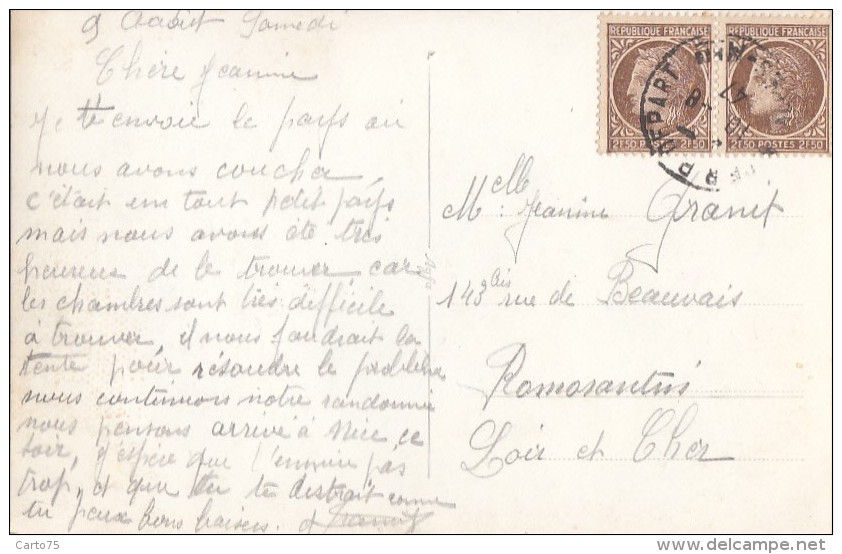 9 Août Samedi
Chère Jeanine
Je t'envoie le pays où
nous avons coucher
c'était un tout petit pays
mais nous avons été très
heureux de le trouver, car
les chambres sont très difficile
à trouver, il nous faudrait la
tente pour résoudre le problème
nous continuons notre randonnée
nous pensons arrivé à Nice ce
soir, j'espère que t'ennuie pas
trop, et que tu te distrait comme
tu peux bons baisers.
RÉPUBLIQUE FRANÇAISE
RÉPUBLIQUE FRANÇAISE
2F50 POSTES 2F50
2F50 POSTES 2F50
DEPART
Melle Jeanine Granit
143 bis rue de Beauvais
Romorantin
Loir et Cher
Carto75
www.delcampe.net